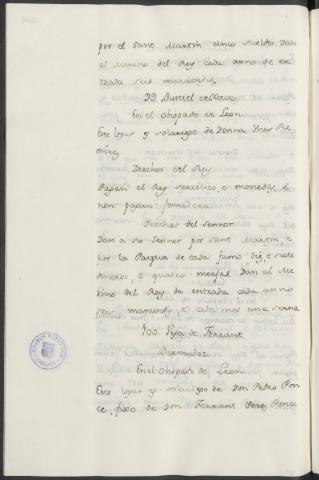 por el Sant Martin cinco sueldos. Dan
al Merino del Rey cada anno de en-
trada seis maravedis.
99. Burriel
En el Obispado de Leon.
Este logar es solariego de Donna Ynes Re-
mirez.
Drechos del Rey
Pagan al Rey servicios, e monedas, e
non pagan fonsadera.
Drechos del Sennor
Dan a so Sennor por Sant Martin, e
por la Pasqua de cada fumo diz, e siete
dineros, e quatro meajas. Dan al Me-
rino del Rey de entrada cada anno
seis maravedis, e cada mes una serna
100. Vega de Ferrant
Bermudez.
En el Obispado de Leon.
Este logar es solariego de Don Pedro Pon-
ce, fijo de Don Ferrant Perez Ponce